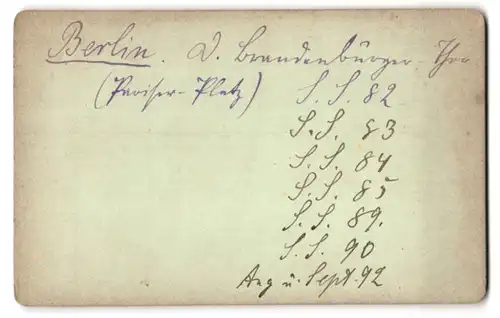 Berlin. D. Brandenbürger-Thor
(Pariser-Platz) S. S. 82
S. S. 83
S. S. 84
S. S. 85
S. S. 89.
S. S. 90
Aug u. Sept. 92